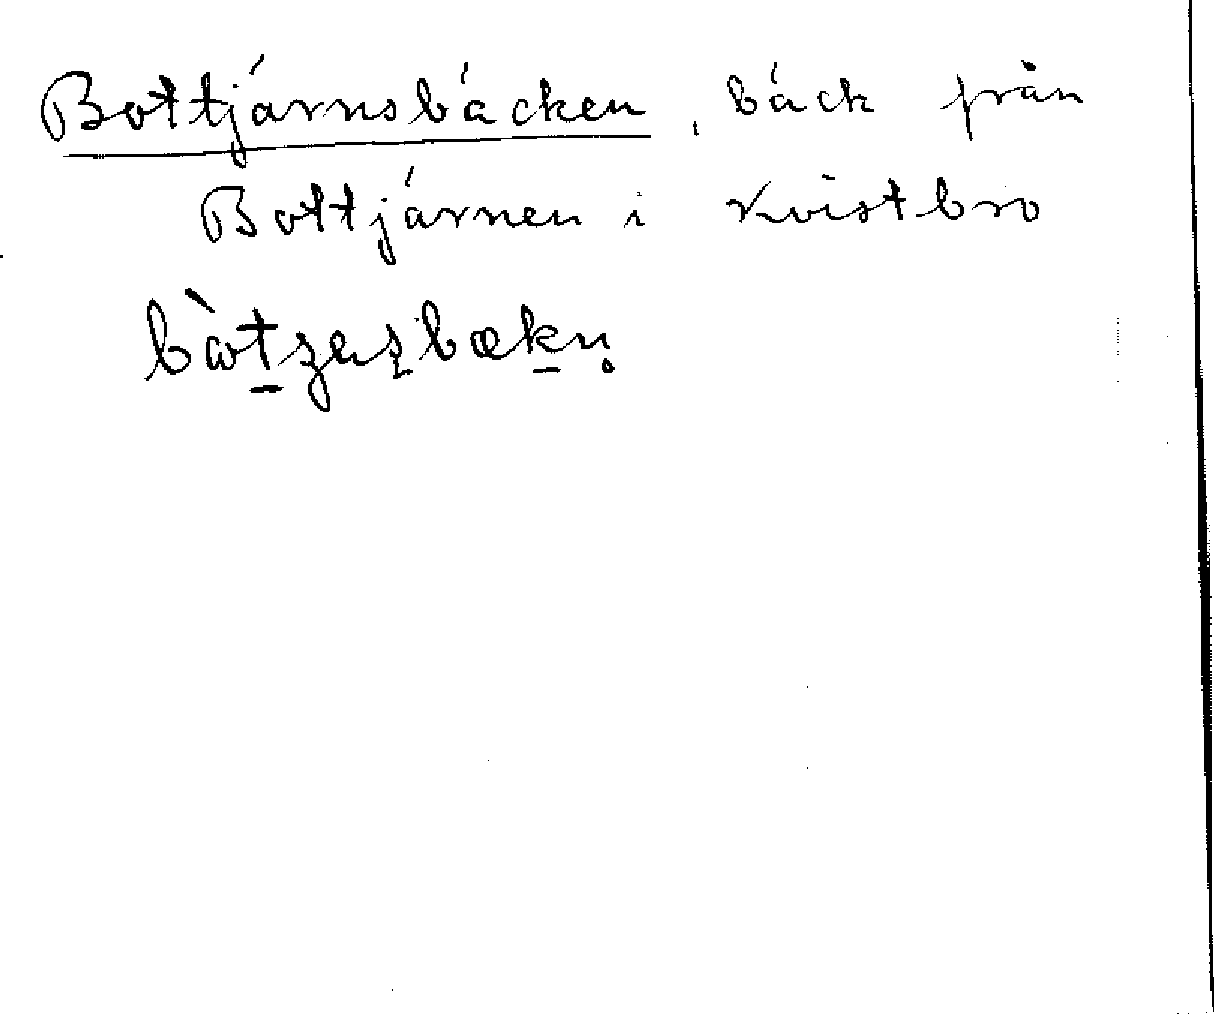 Bottjärnsbäcken, bäck från
Bottjärnen i Kvistbro